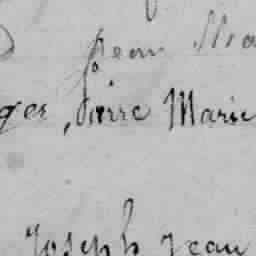 Jean Ma
ger, Pierre Marie
Joseph Jean